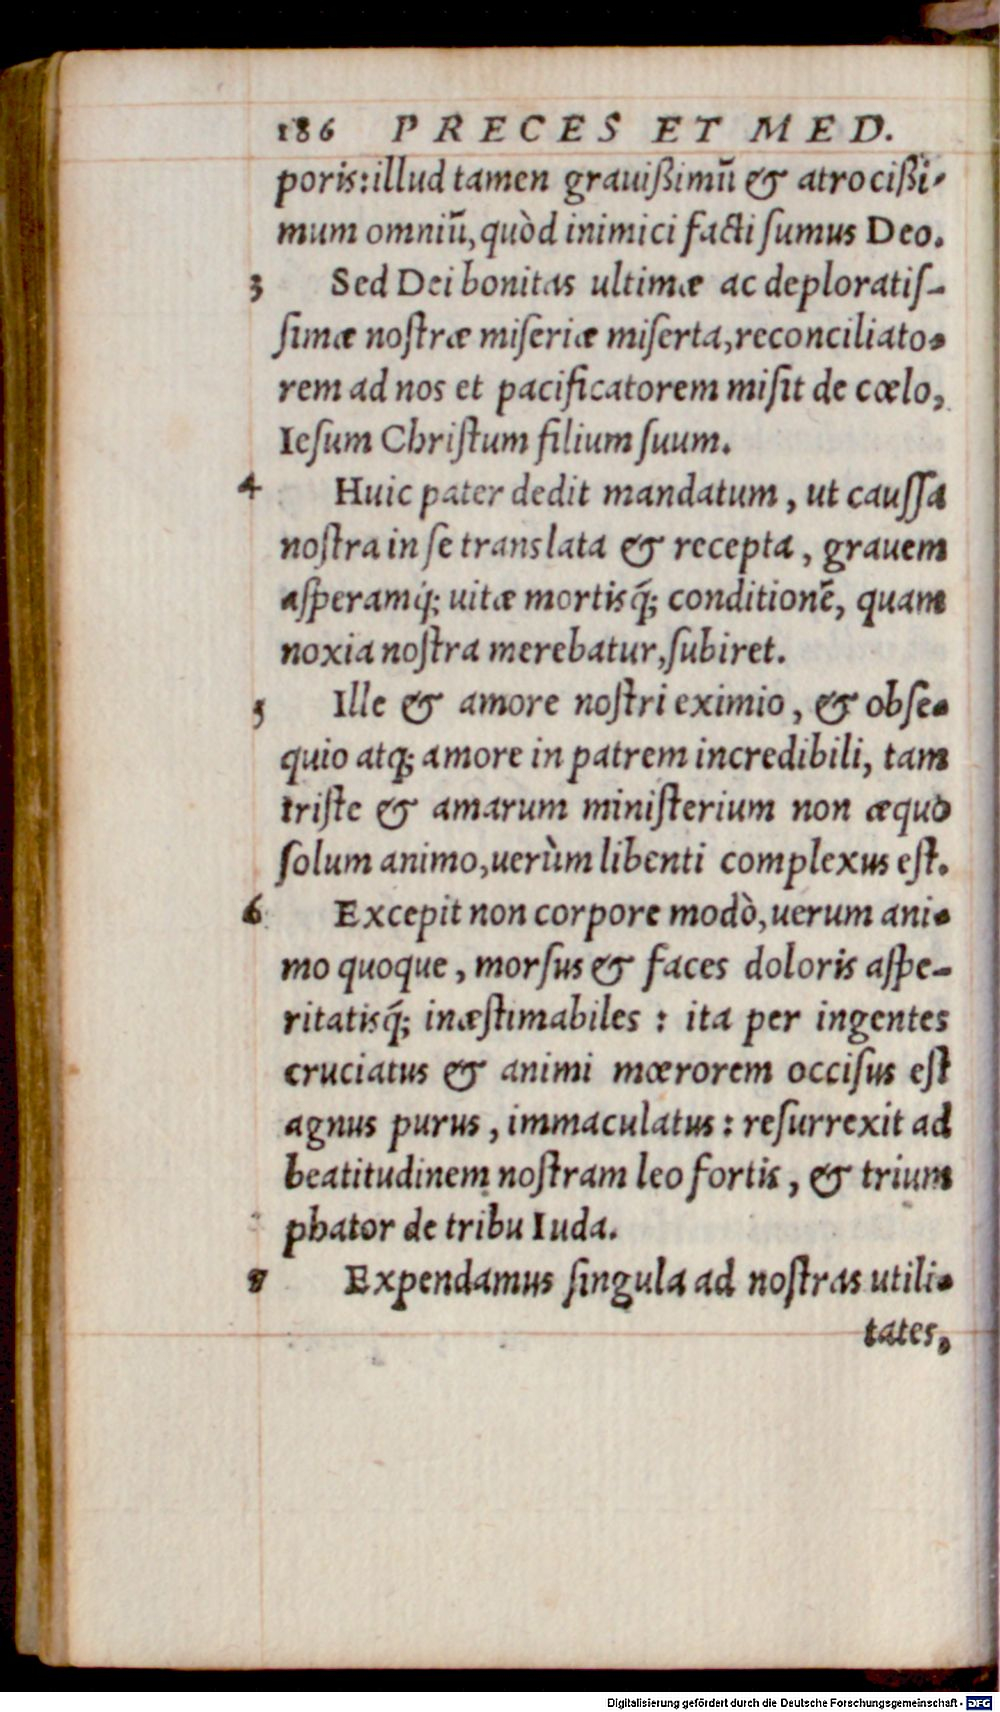 186 PRECES ET MED.
poris: illud tamen grauißimū & atrocißi-
mum omniū, quòd inimici facti ſumus Deo.
3 Sed Dei bonitas ultimæ ac deploratiſ-
ſimæ noſtræ miſeriæ miſerta, reconciliato-
rem ad nos et pacificatorem miſit de cœlo,
Ieſum Chriſtum filium ſuum.
4 Huic pater dedit mandatum, ut cauſſa
noſtra in ſe translata & recepta, grauem
aſperamq́; uitæ mortisq́; conditionē, quam
noxia noſtra merebatur, ſubiret.
5 Ille & amore noſtri eximio, & obſe-
quio atq; amore in patrem incredibili, tam
triſte & amarum miniſterium non æquo
ſolum animo, uerùm libenti complexus eſt.
6 Excepit non corpore modò, uerum ani-
mo quoque, morſus & faces doloris aſpe-
ritatisq́; inæſtimabiles: ita per ingentes
cruciatus & animi mœrorem occiſus eſt
agnus purus, immaculatus: reſurrexit ad
beatitudinem noſtram leo fortis, & trium
phator de tribu Iuda.
8 Expendamus ſingula ad noſtras utili-
tates,
Digitalisierung gefördert durch die Deutsche Forschungsgemeinschaft - DFG